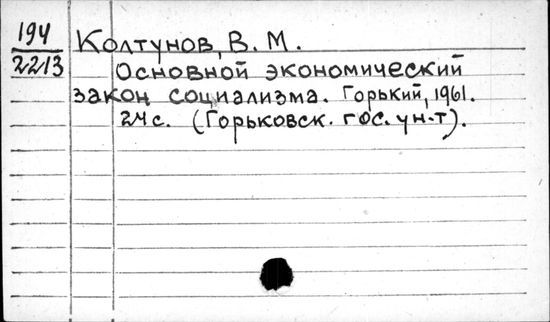 194
2213
Колтунов, В. М.
Основной экономический
закон социализма. Горький, 1961.
24 с. (Горьковск. гос. ун-т).